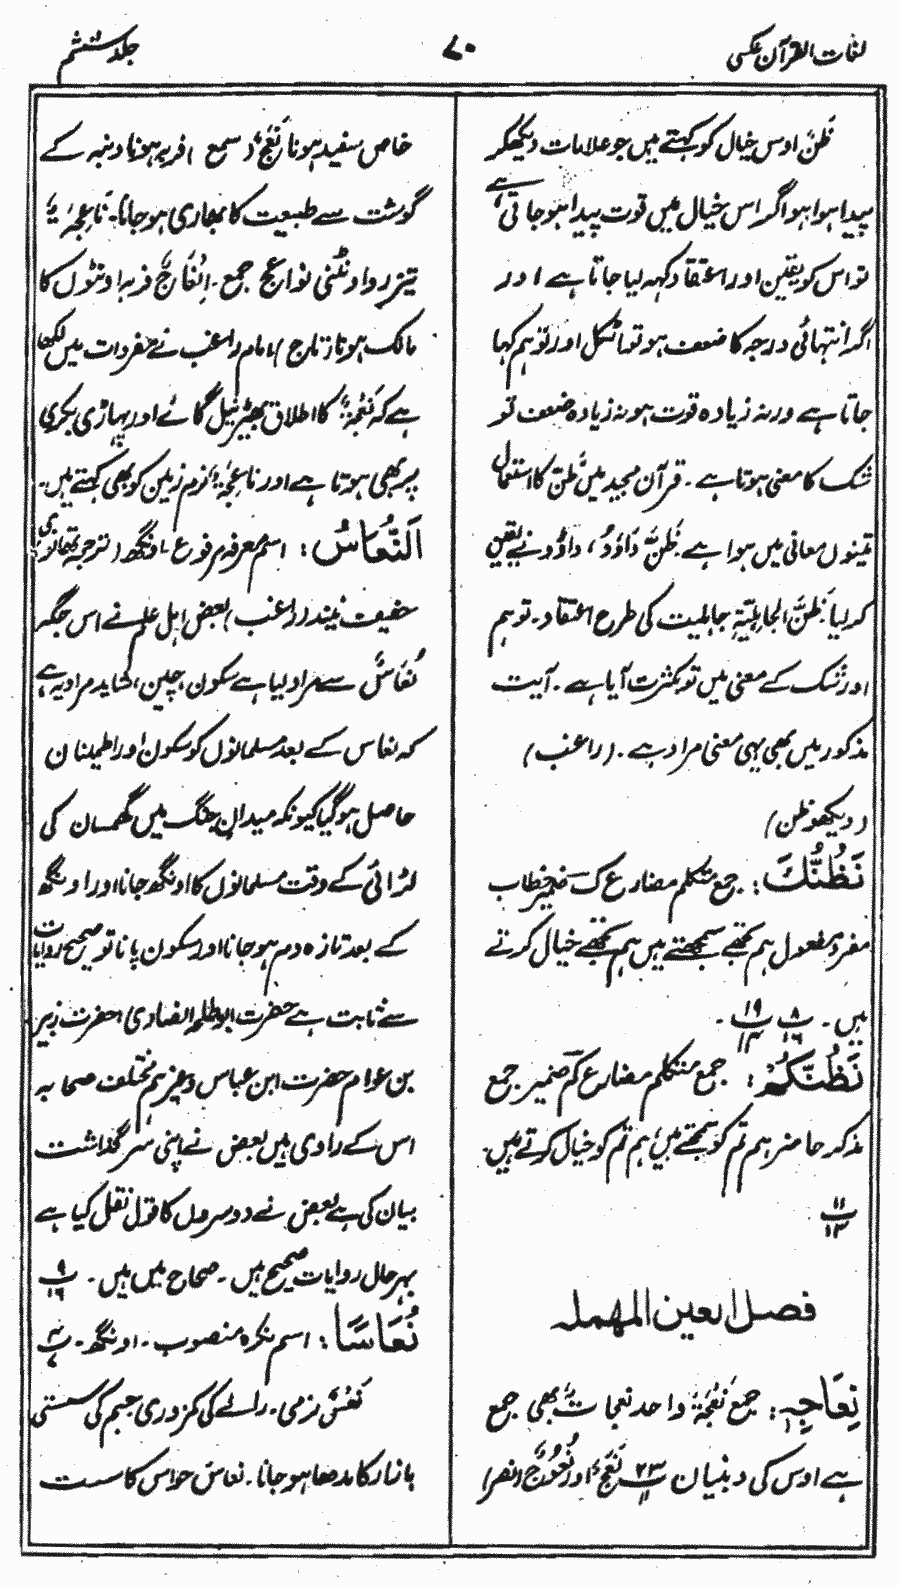 لغات القرآن عکسی
۷۰
جلد ششم
ظن اوس خیال کو کہتے ہیں جو علامات دیکھکر
پیدا ہوا ہو اگر اس خیال میں قوت پیدا ہو جاتی ہے
تو اس کو یقین اور اعتقاد کہہ لیا جاتا ہے اور
اگر انتہائی درجہ کا ضعف ہو تو اٹکل اور توہم کہا
جاتا ہے ورنہ زیادہ قوت ہو نہ زیادہ ضعف تو
شک کا معنی ہوتا ہے۔ قرآن مجید میں ظن کا استعمال
تینوں معانی میں ہوا ہے ظَنَّ دَاوُدُ، داؤد نے یقین
کر لیا ظَنَّ الْجَاهِلِيَّةِ جاہلیت کی طرح اعتقاد۔ توہم
اور شک کے معنی میں تو بکثرت آیا ہے۔ آیت
مذکور میں بھی یہی معنی مراد ہے۔ (راغب)
(دیکھو ظن)
نَظُنُّكَ: جمع متکلم مضارع کَ ضمیر خطاب
مفرد مفعول ہم تجھے سمجھتے ہیں ہم تجھے خیال کرتے
ہیں۔ ۸/۱۶ پ ۱۹/۱۳ پ۔
نَظُنُّكُمْ: جمع متکلم مضارع کم ضمیر جمع
مذکر حاضر ہم تم کو سمجھتے ہیں ہم تم کو خیال کرتے ہیں۔
۱۱/۱۲ پ
فصل العین المہملہ
نِعَاجِهٖ: جمع نَعْجَةٌ واحد نعجات بھی جمع
ہے اوس کی دنبیاں ۲۳/۱۱ پ نَعَجٌ اور نُعُوْجٌ (نصر)
خاص سفید ہونا نَعَجٌ (سمع) فربہ ہونا دنبہ کے
گوشت سے طبیعت کا بھاری ہو جانا۔ نَاعِجَةٌ
تیز رو اونٹنی نواعج جمع۔ اِنْعَاجٌ فربہ اونٹوں کا
مالک ہونا (تاج) امام راغب نے مفردات میں لکھا
ہے کہ نَعْجَةٌ کا اطلاق بھیڑ نیل گائے اور پہاڑی بکری
پر بھی ہوتا ہے اور ناعجۃ نرم زمین کو بھی کہتے ہیں۔
اَلنُّعَاسُ: اسم معرفہ مرفوع۔ اونگھ (ترجمہ تھانوی)
خفیف نیند (راغب) بعض اہل علم نے اس جگہ
نُعَاسٌ سے مراد لیا ہے سکون، چین، شاید مراد یہ ہے
کہ نعاس کے بعد مسلمانوں کو سکون اور اطمینان
حاصل ہو گیا کیونکہ میدان جنگ میں گھمسان کی
لڑائی کے وقت مسلمانوں کا اونگھ جانا اور اونگھ
کے بعد تازہ دم ہو جانا اور سکون پانا تو صحیح روایات
سے ثابت ہے حضرت ابو طلحہ انصاری، حضرت زبیر
بن عوام حضرت ابن عباس وغیرہم مختلف صحابہ
اس کے راوی ہیں بعض نے اپنی سرگذاشت
بیان کی ہے بعض نے دوسروں کا قول نقل کیا ہے
بہر حال روایات صحیح ہیں۔ صحاح میں ہیں۔ ۹/۱۶ پ
نُعَاسًا: اسم نکرہ منصوب۔ اونگھ۔ پ
نَعْسٌ نرمی۔ رائے کی کمزوری جسم کی سستی
بازار کا مدھا ہو جانا۔ نعاس حواس کا سست